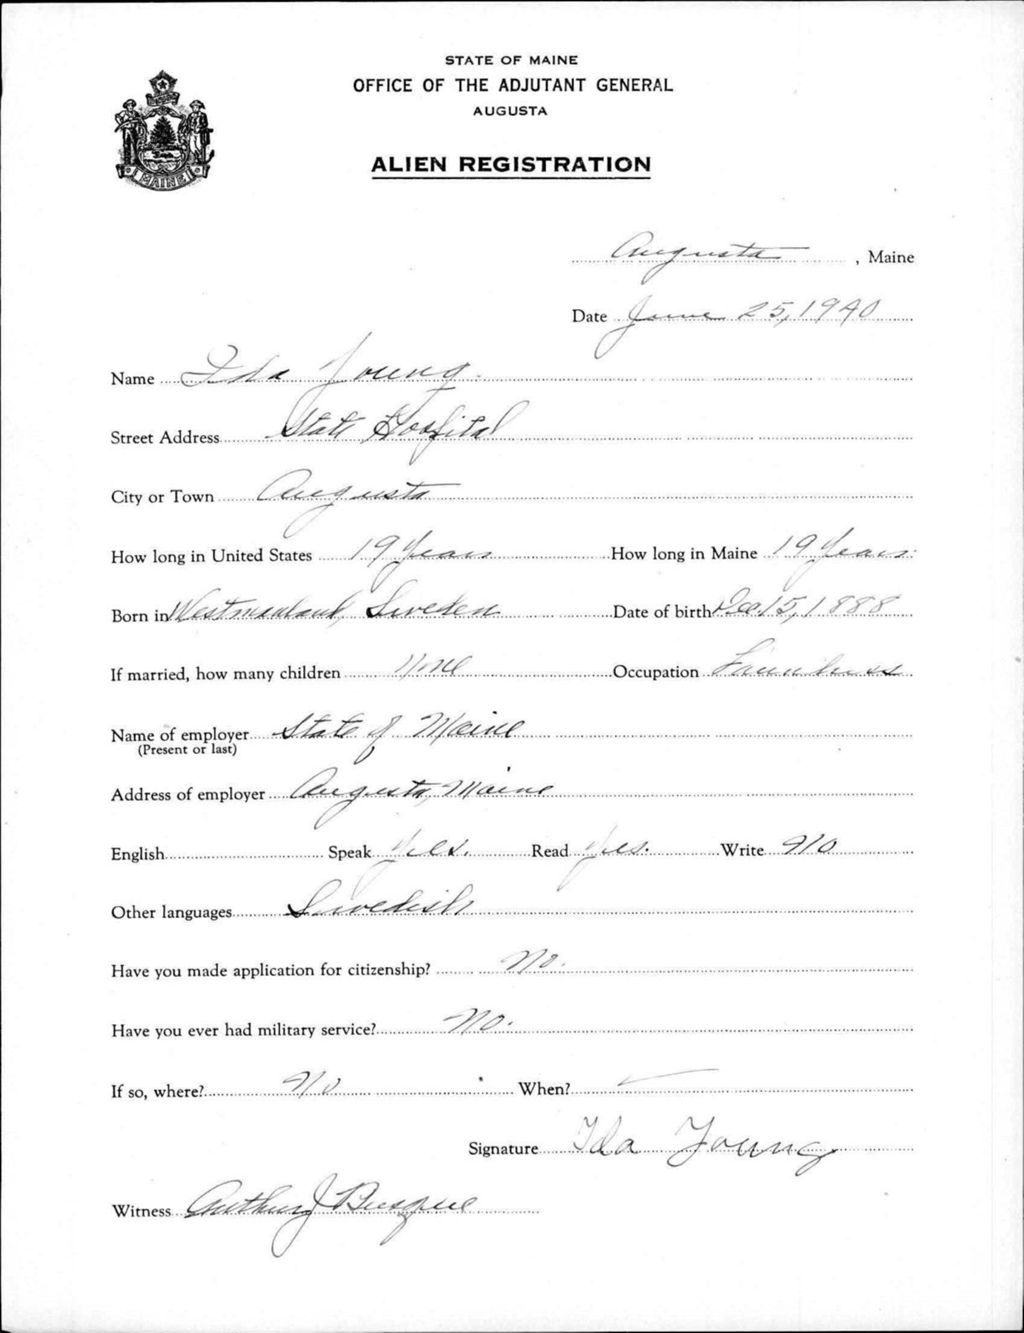 STATE OF MAINE
OFFICE OF THE ADJUTANT GENERAL
AUGUSTA
ALIEN REGISTRATION
MAINE
Augusta, Maine
Date June 25, 1940
Name Ida Young.
Street Address State Hospital
City or Town Augusta
How long in United States 19 Years How long in Maine 19 Years.
Born in Westmanland, Sweden Date of birth Dec. 15, 1888
If married, how many children None Occupation Laundress
Name of employer State of Maine
(Present or last)
Address of employer Augusta, Maine
English Speak Yes. Read Yes. Write No
Other languages Swedish
Have you made application for citizenship? No.
Have you ever had military service? No.
If so, where? No When? —
Signature Ida Young
Witness Arthur J Busque